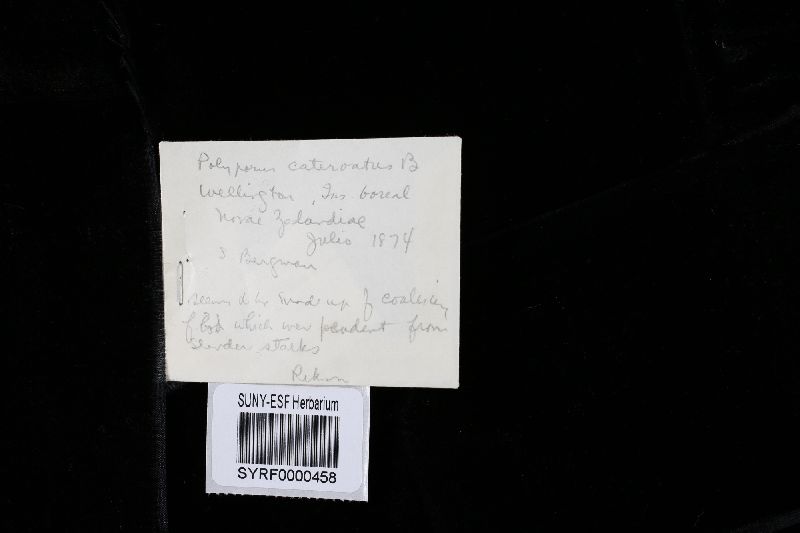 Polyporus catervatus B
Wellington, Ins. boreal
Novae Zelandiae
Julio 1874
S Berggren
seems to be made up of coalescing
which were pendent from
slender stalks
SUNY-ESF Herbarium
SYRF0000458